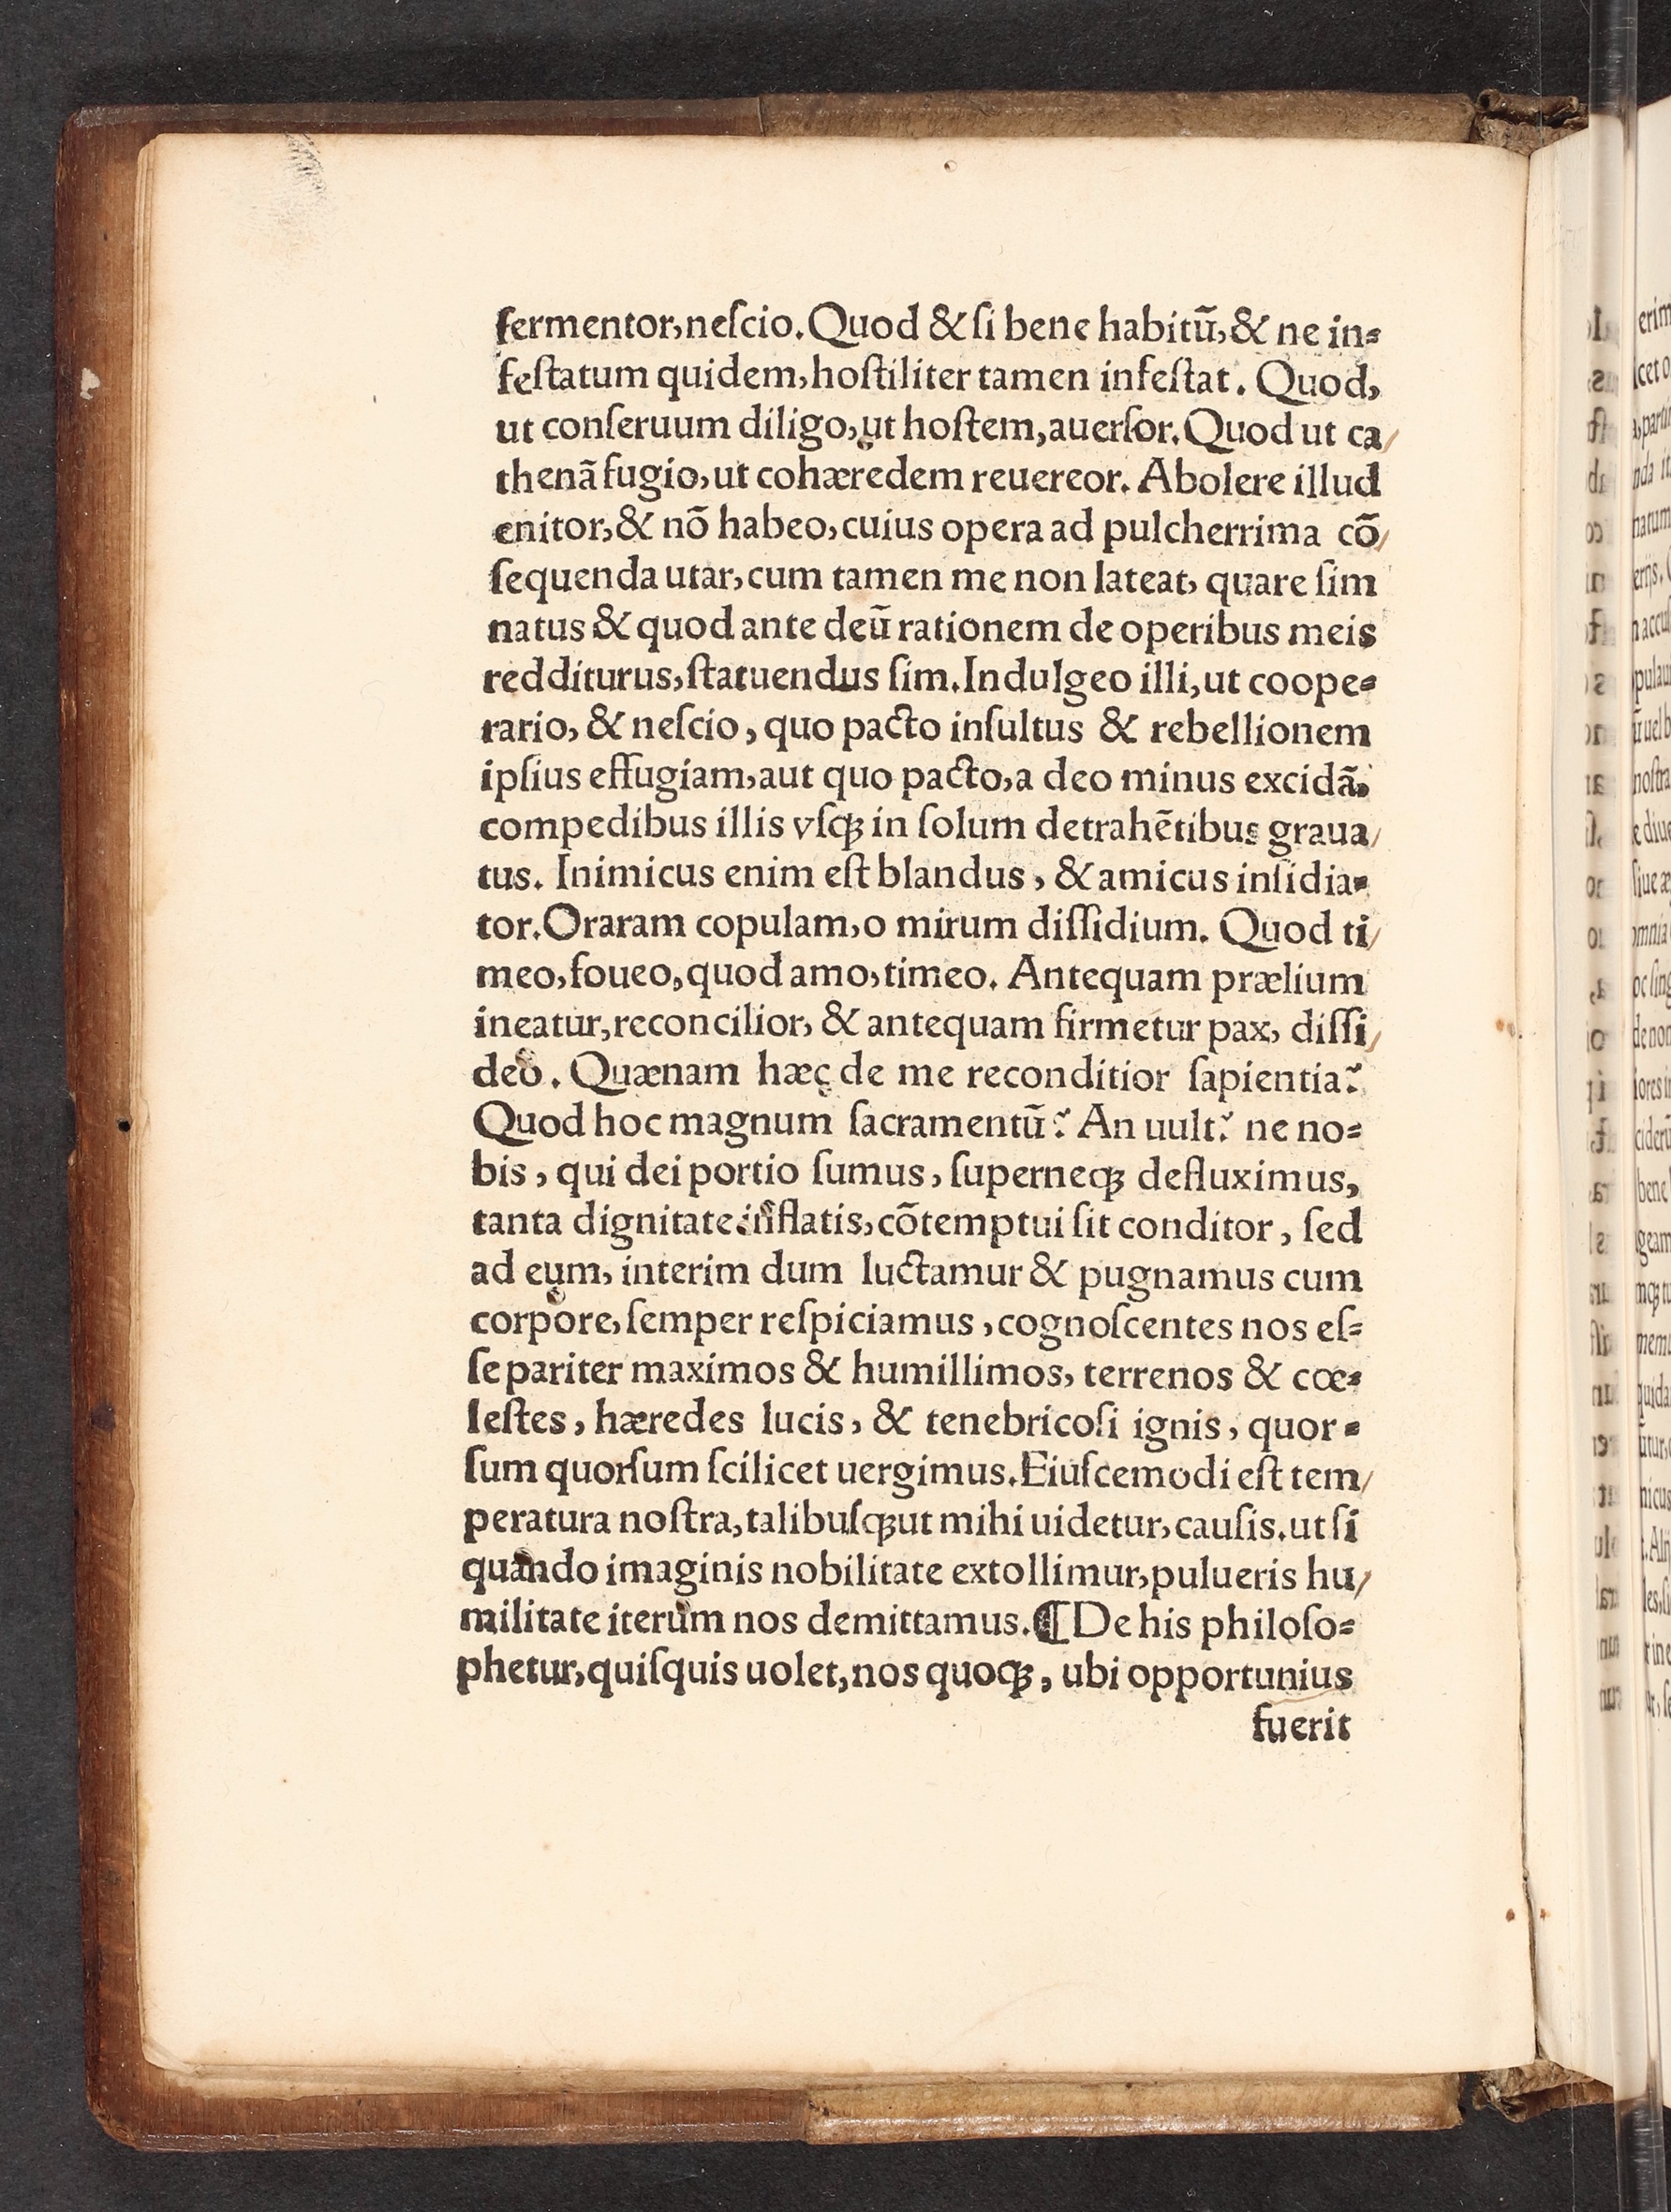 fermentor,neſcio.Quod & ſi bene habitū,& ne in-
feſtatum quidem,hoſtiliter tamen infeſtat. Quod,
ut conſeruum diligo,ut hoſtem,auerſor.Quod ut ca/
thenā fugio,ut cohæredem reuereor. Abolere illud
enitor,& nō habeo,cuius opera ad pulcherrima cō/
ſequenda utar,cum tamen me non lateat, quare ſim
natus & quod ante deū rationem de operibus meis
redditurus,ſtatuendus ſim.Indulgeo illi,ut coope-
rario, & neſcio, quo pacto inſultus & rebellionem
ipſius effugiam,aut quo pacto,a deo minus excidā,
compedibus illis vſqꝫ in ſolum detrahētibus graua/
tus. Inimicus enim eſt blandus, & amicus inſidia-
tor.Oraram copulam,o mirum diſſidium. Quod ti/
meo,foueo,quod amo,timeo. Antequam prælium
ineatur,reconcilior, & antequam firmetur pax, diſſi/
deo. Quænam hæc de me reconditior ſapientia?
Quod hoc magnum ſacramentū? An uult? ne no-
bis, qui dei portio ſumus, ſuperneqꝫ defluximus,
tanta dignitate inflatis,cōtemptui ſit conditor, ſed
ad eum, interim dum luctamur & pugnamus cum
corpore,ſemper reſpiciamus,cognoſcentes nos eſ-
ſe pariter maximos & humillimos, terrenos & cœ-
leſtes, hæredes lucis, & tenebricoſi ignis, quor-
ſum quorſum ſcilicet uergimus.Eiuſcemodi eſt tem/
peratura noſtra,talibuſqꝫ ut mihi uidetur,cauſis.ut ſi
quando imaginis nobilitate extollimur,pulueris hu/
militate iterum nos demittamus.¶ De his philoſo-
phetur,quiſquis uolet,nos quoqꝫ, ubi opportunius
fuerit